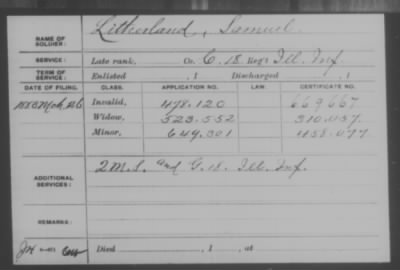 NAME OF SOLDIER: Litherland, Samuel.
SERVICE: Late rank, Co. C. 18. Reg't Ill. Inf.
TERM OF SERVICE: Enlisted , 1 Discharged , 1
DATE OF FILING. CLASS. APPLICATION NO. LAW. CERTIFICATE NO.
Invalid, 478.120 669667
Widow, 523.552
Minor, 649.301
ADDITIONAL SERVICES: 2 M.S. and G. 18. Ill. Inf.
REMARKS:
Died , 1 , at